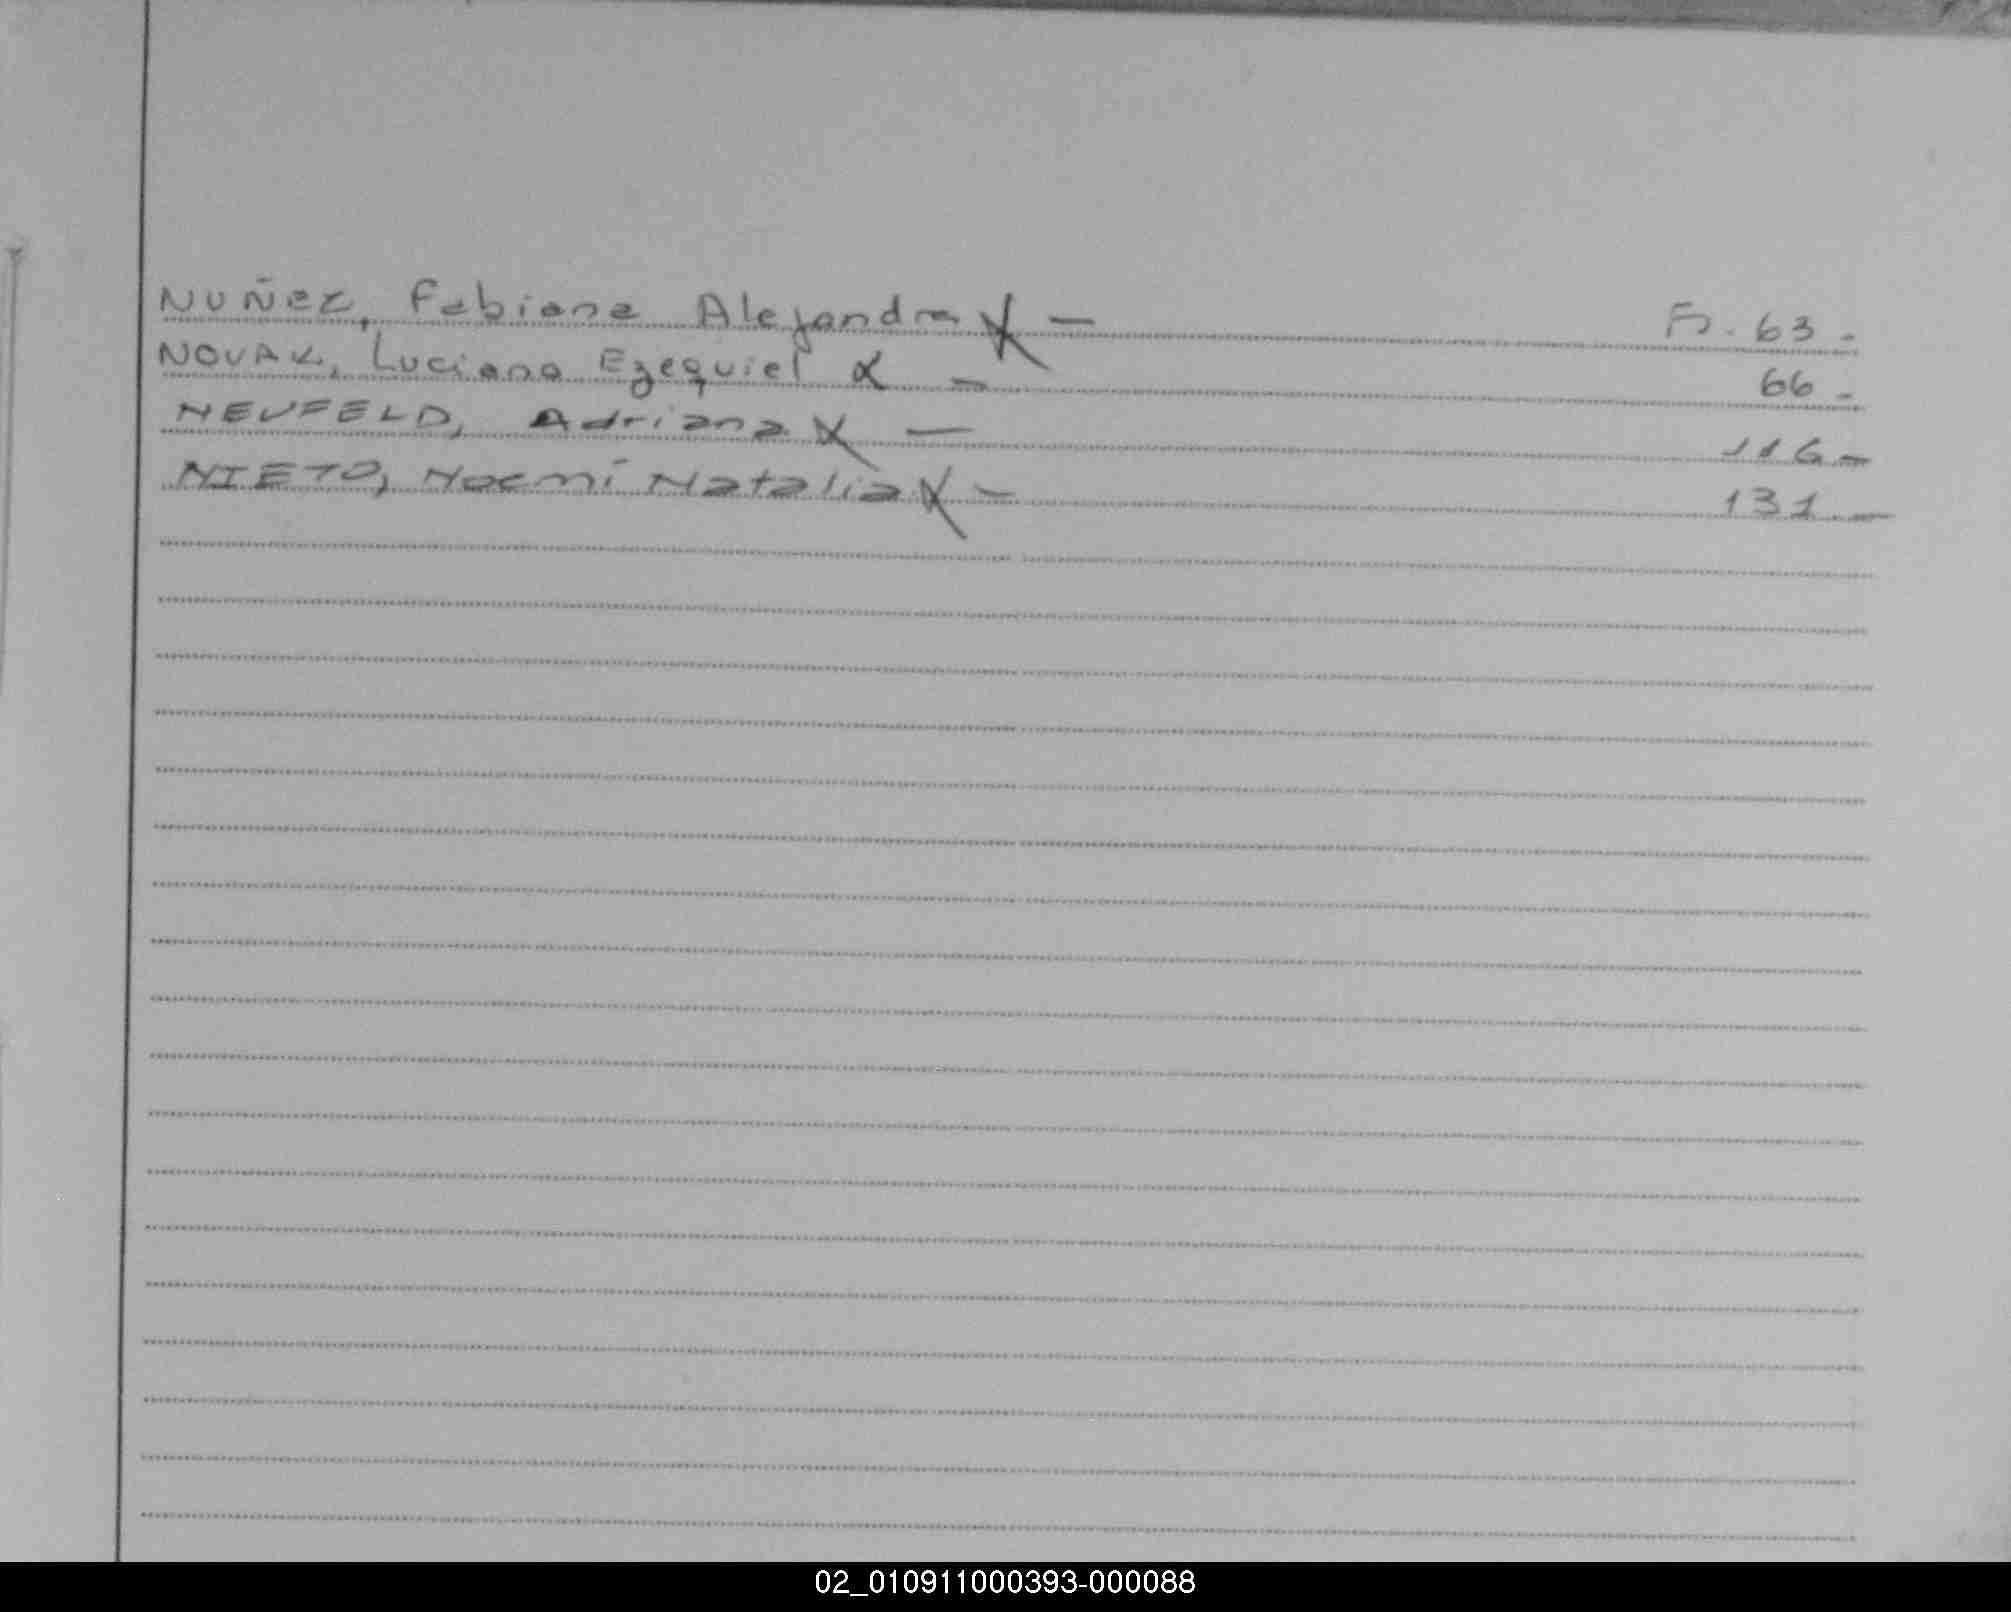 NUÑEZ, Fabiana Alejandra X — F. 63 -
NOVAK, Luciano Ezequiel X — 66 -
NEUFELD, Adriana X — 116 -
NIETO, Noemí Natalia X — 131 —
02_010911000393-000088